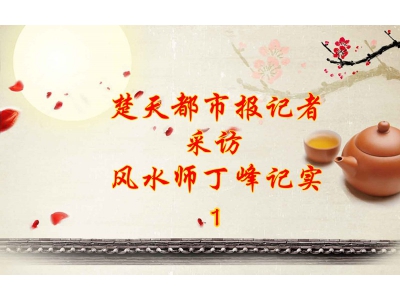 楚天都市报记者
采访
风水师丁峰记实
1